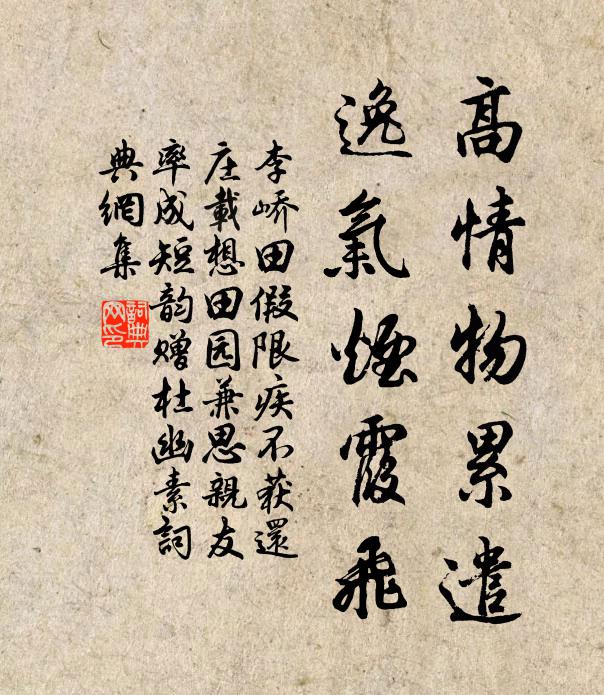 高情物累遣
逸氣煙霞飛
李嶠田假限疾不获還
庄載想田园兼思親友
率成短韵赠杜幽素詞
典網集
詞典
网印